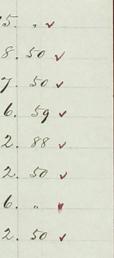 5. " ✓
8. 50 ✓
7. 50 ✓
6. 59 ✓
2. 88 ✓
2. 50 ✓
6. " ✓
2. 50 ✓